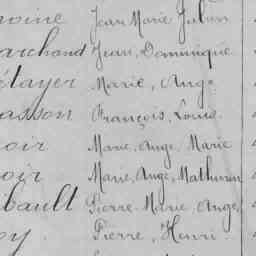 moine Jean Marie Julien
archand Jean, Dominique
étayer Marie, Ange
asson François, Louis
oir Marie, Ange, Marie
oir Marie, Ange, Mathurin
ibault Pierre Marie Ange
oy. Pierre, Henri